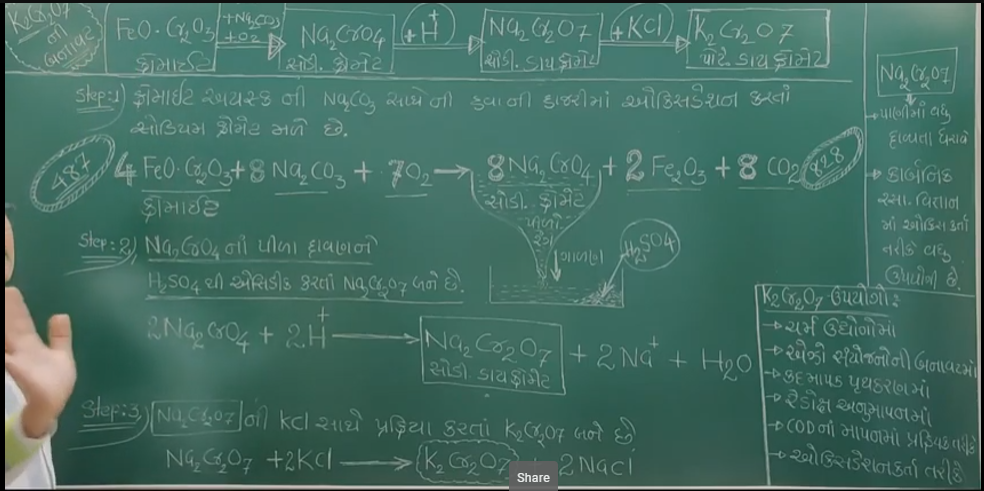 K₂Cr₂O₇
ની
બનાવટ
FeO·Cr₂O₃
ક્રોમાઈટ
+Na₂CO₃
+O₂
Na₂CrO₄
સોડી. ક્રોમેટ
+H⁺
Na₂Cr₂O₇
સોડી. ડાયક્રોમેટ
+KCl
K₂Cr₂O₇
પોટે. ડાયક્રોમેટ
Step:1) ક્રોમાઈટ અયસ્ક ની Na₂CO₃ સાથેની હવાની હાજરીમાં ઓક્સિડેશન કરતાં
સોડિયમ ક્રોમેટ મળે છે.
487
4 FeO·Cr₂O₃ + 8 Na₂CO₃ + 7O₂ → 8 Na₂CrO₄ + 2 Fe₂O₃ + 8 CO₂
828
ક્રોમાઈટ
સોડી. ક્રોમેટ
પીળો
રંગ
ગાળણ
H₂SO₄
Step:2) Na₂CrO₄ નાં પીળા દ્રાવણને
H₂SO₄ થી એસિડીક કરતાં Na₂Cr₂O₇ બને છે.
2Na₂CrO₄ + 2H⁺ → Na₂Cr₂O₇ + 2Na⁺ + H₂O
સોડી ડાયક્રોમેટ
Step:3) Na₂Cr₂O₇ ની KCl સાથે પ્રક્રિયા કરતાં K₂Cr₂O₇ બને છે
Na₂Cr₂O₇ + 2KCl → K₂Cr₂O₇ + 2NaCl
Na₂Cr₂O₇
→ પાણીમાં વધુ
દ્રાવ્યતા ધરાવે
→ કાર્બનિક
રસા. વિજ્ઞાન
માં ઓક્સિ કર્તા
તરીકે વધુ
ઉપયોગી છે.
K₂Cr₂O₇ ઉપયોગો:
→ ચર્મ ઉદ્યોગોમાં
→ એઝો સંયોજનોની બનાવટમાં
→ કદમાપક પૃથક્કરણમાં
→ રેડોક્ષ અનુમાપનમાં
→ COD નાં માપનમાં પ્રક્રિયક તરીકે
→ ઓક્સિડેશનકર્તા તરીકે
Share